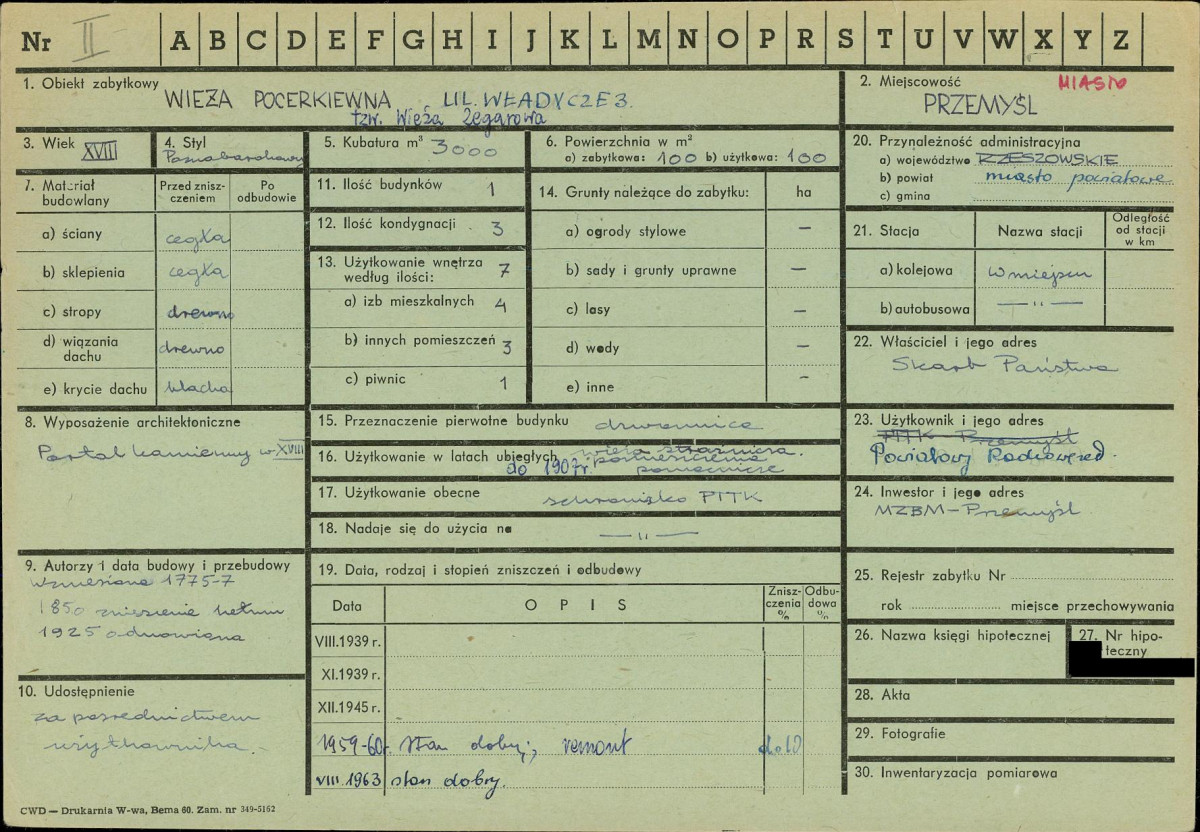 Nr II A B C D E F G H I J K L M N O P R S T U V W X Y Z
1. Obiekt zabytkowy
WIEŻA POCERKIEWNA, UL. WŁADYCZE 3.
tzw. Wieża Zegarowa
2. Miejscowość MIASTO
PRZEMYŚL
3. Wiek XVIII
4. Styl
Późnobarokowy
5. Kubatura m³ 3000
6. Powierzchnia w m²
a) zabytkowa: 100 b) użytkowa: 100
20. Przynależność administracyjna
a) województwo RZESZOWSKIE
b) powiat miasto powiatowe
c) gmina
7. Materiał budowlany
Przed zniszczeniem
Po odbudowie
a) ściany cegła
b) sklepienia cegła
c) stropy drewno
d) wiązania dachu drewno
e) krycie dachu blacha
11. Ilość budynków 1
12. Ilość kondygnacji 3
13. Użytkowanie wnętrza według ilości: 7
a) izb mieszkalnych 4
b) innych pomieszczeń 3
c) piwnic 1
14. Grunty należące do zabytku: ha
a) ogrody stylowe —
b) sady i grunty uprawne —
c) lasy —
d) wody —
e) inne —
21. Stacja
Nazwa stacji
Odległość od stacji w km
a) kolejowa w miejscu
b) autobusowa —"—
22. Właściciel i jego adres
Skarb Państwa
8. Wyposażenie architektoniczne
Portal kamienny w XVIII
15. Przeznaczenie pierwotne budynku dzwonnica
16. Użytkowanie w latach ubiegłych wieża strażnicza.
do 1907r. pomieszczenia
pomocnicze
17. Użytkowanie obecne schronisko PTTK
18. Nadaje się do użycia na —"—
23. Użytkownik i jego adres
PTTK Przemyśl
Powiatowy
24. Inwestor i jego adres
MZBM – Przemyśl
9. Autorzy i data budowy i przebudowy
Wzniesiona 1775-7
1850 zniesienie hełmu
1925 odnowiona
19. Data, rodzaj i stopień zniszczeń i odbudowy
Data
O P I S
Zniszczenia %
Odbudowa %
VIII.1939 r.
XI.1939 r.
XII.1945 r.
1959-60r. stan dobry; remont do 10
VIII.1963 stan dobry.
25. Rejestr zabytku Nr
rok miejsce przechowywania
26. Nazwa księgi hipotecznej
27. Nr hipoteczny
10. Udostępnienie
za pośrednictwem
użytkownika.
28. Akta
29. Fotografie
30. Inwentaryzacja pomiarowa
CWD — Drukarnia W-wa, Bema 60. Zam. nr 349-5162